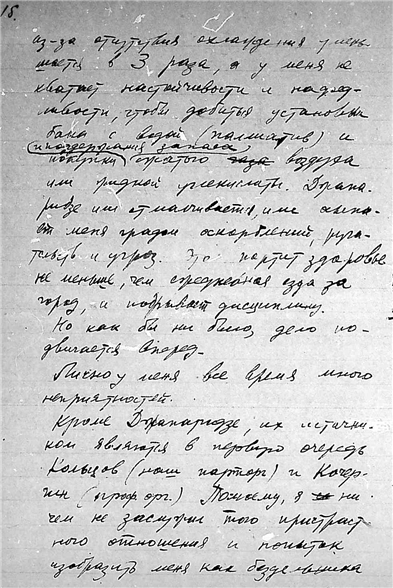 15.
из-за отсутствия охлаждения умень-
шается в 3 раза, а у меня не
хватает настойчивости и надоед-
ливости, чтобы добиться установки
бака с водой (паллиатив) и
и поддержания запаса
покупки сжатого воздуха
или жидкой углекислоты. Джапа-
ридзе или отмалчивается, или осыпа-
ет меня градом оскорблений, руга-
тельств и угроз. Это портит здоровье
не меньше, чем ежедневная езда за
город, и подрывает дисциплину.
Но как бы ни было, дело по-
двигается вперед.
Лично у меня все время много
неприятностей.
Кроме Джапаридзе, их источни-
ком являются в первую очередь
Кольцов (наш парторг) и Кочер-
гин (профорг.) Помоему, я ни
чем не заслужил того пристраст
ного отношения и попыток
изобразить меня как бездельника